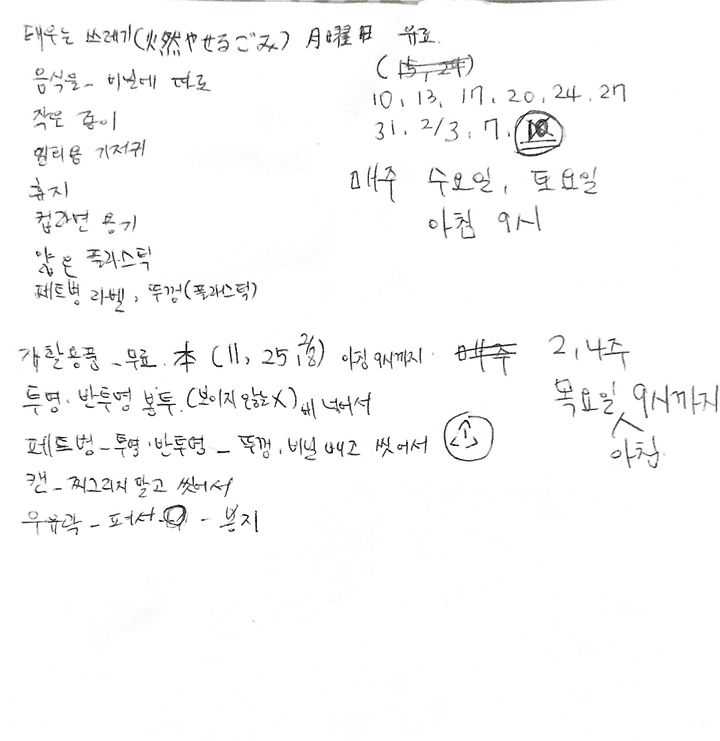 태우는 쓰레기(火燃やせるごみ) 月曜日 유료
(15, 24)
음식물 - 비닐에 따로
10, 13, 17, 20, 24, 27
작은 종이
31, 2/3, 7, 10
일회용 기저귀
매주 수요일, 토요일
휴지
아침 9시
컵라면 용기
얇은 플라스틱
페트병 라벨, 뚜껑(플라스틱)
무료 本 (11, 25, 2/8) 아침 9시까지 매주 2, 4주
투명·반투명 봉투 (보이지 않는 X)에 넣어서
목요일 9시까지
아침
페트병 - 투명·반투명 - 뚜껑, 비닐 빼고 씻어서 1
캔 - 찌그리지 말고 씻어서
우유곽 - 펴서 -